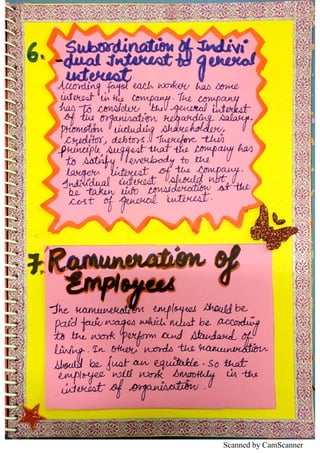 6. Subordination of Indivi
-dual Interest to general
interest
According fayol each worker has some
interest in the company. The company
has to consider the general interest
of the organisation regarding salary,
promotion including shareholder,
creditor, debtors. Therefore this
principle suggest that the company has
to satisfy everbody to the
larger interest of the company.
Individual interest should not
be taken into consideration at the
cost of general interest.
7. Ramuneration of
Employees
The ramuneration employees should be
paid fair wages which must be according
to the work perform and standard of
living. In other words the ramuneration
should be just an equitable. So that
employee will work smoothly in the
interest of organisation.
Scanned by CamScanner